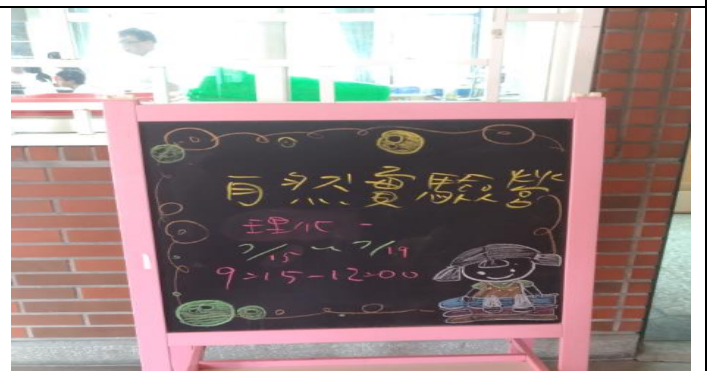 自然實驗營
理化一
7/15~7/19
9:15-12:00